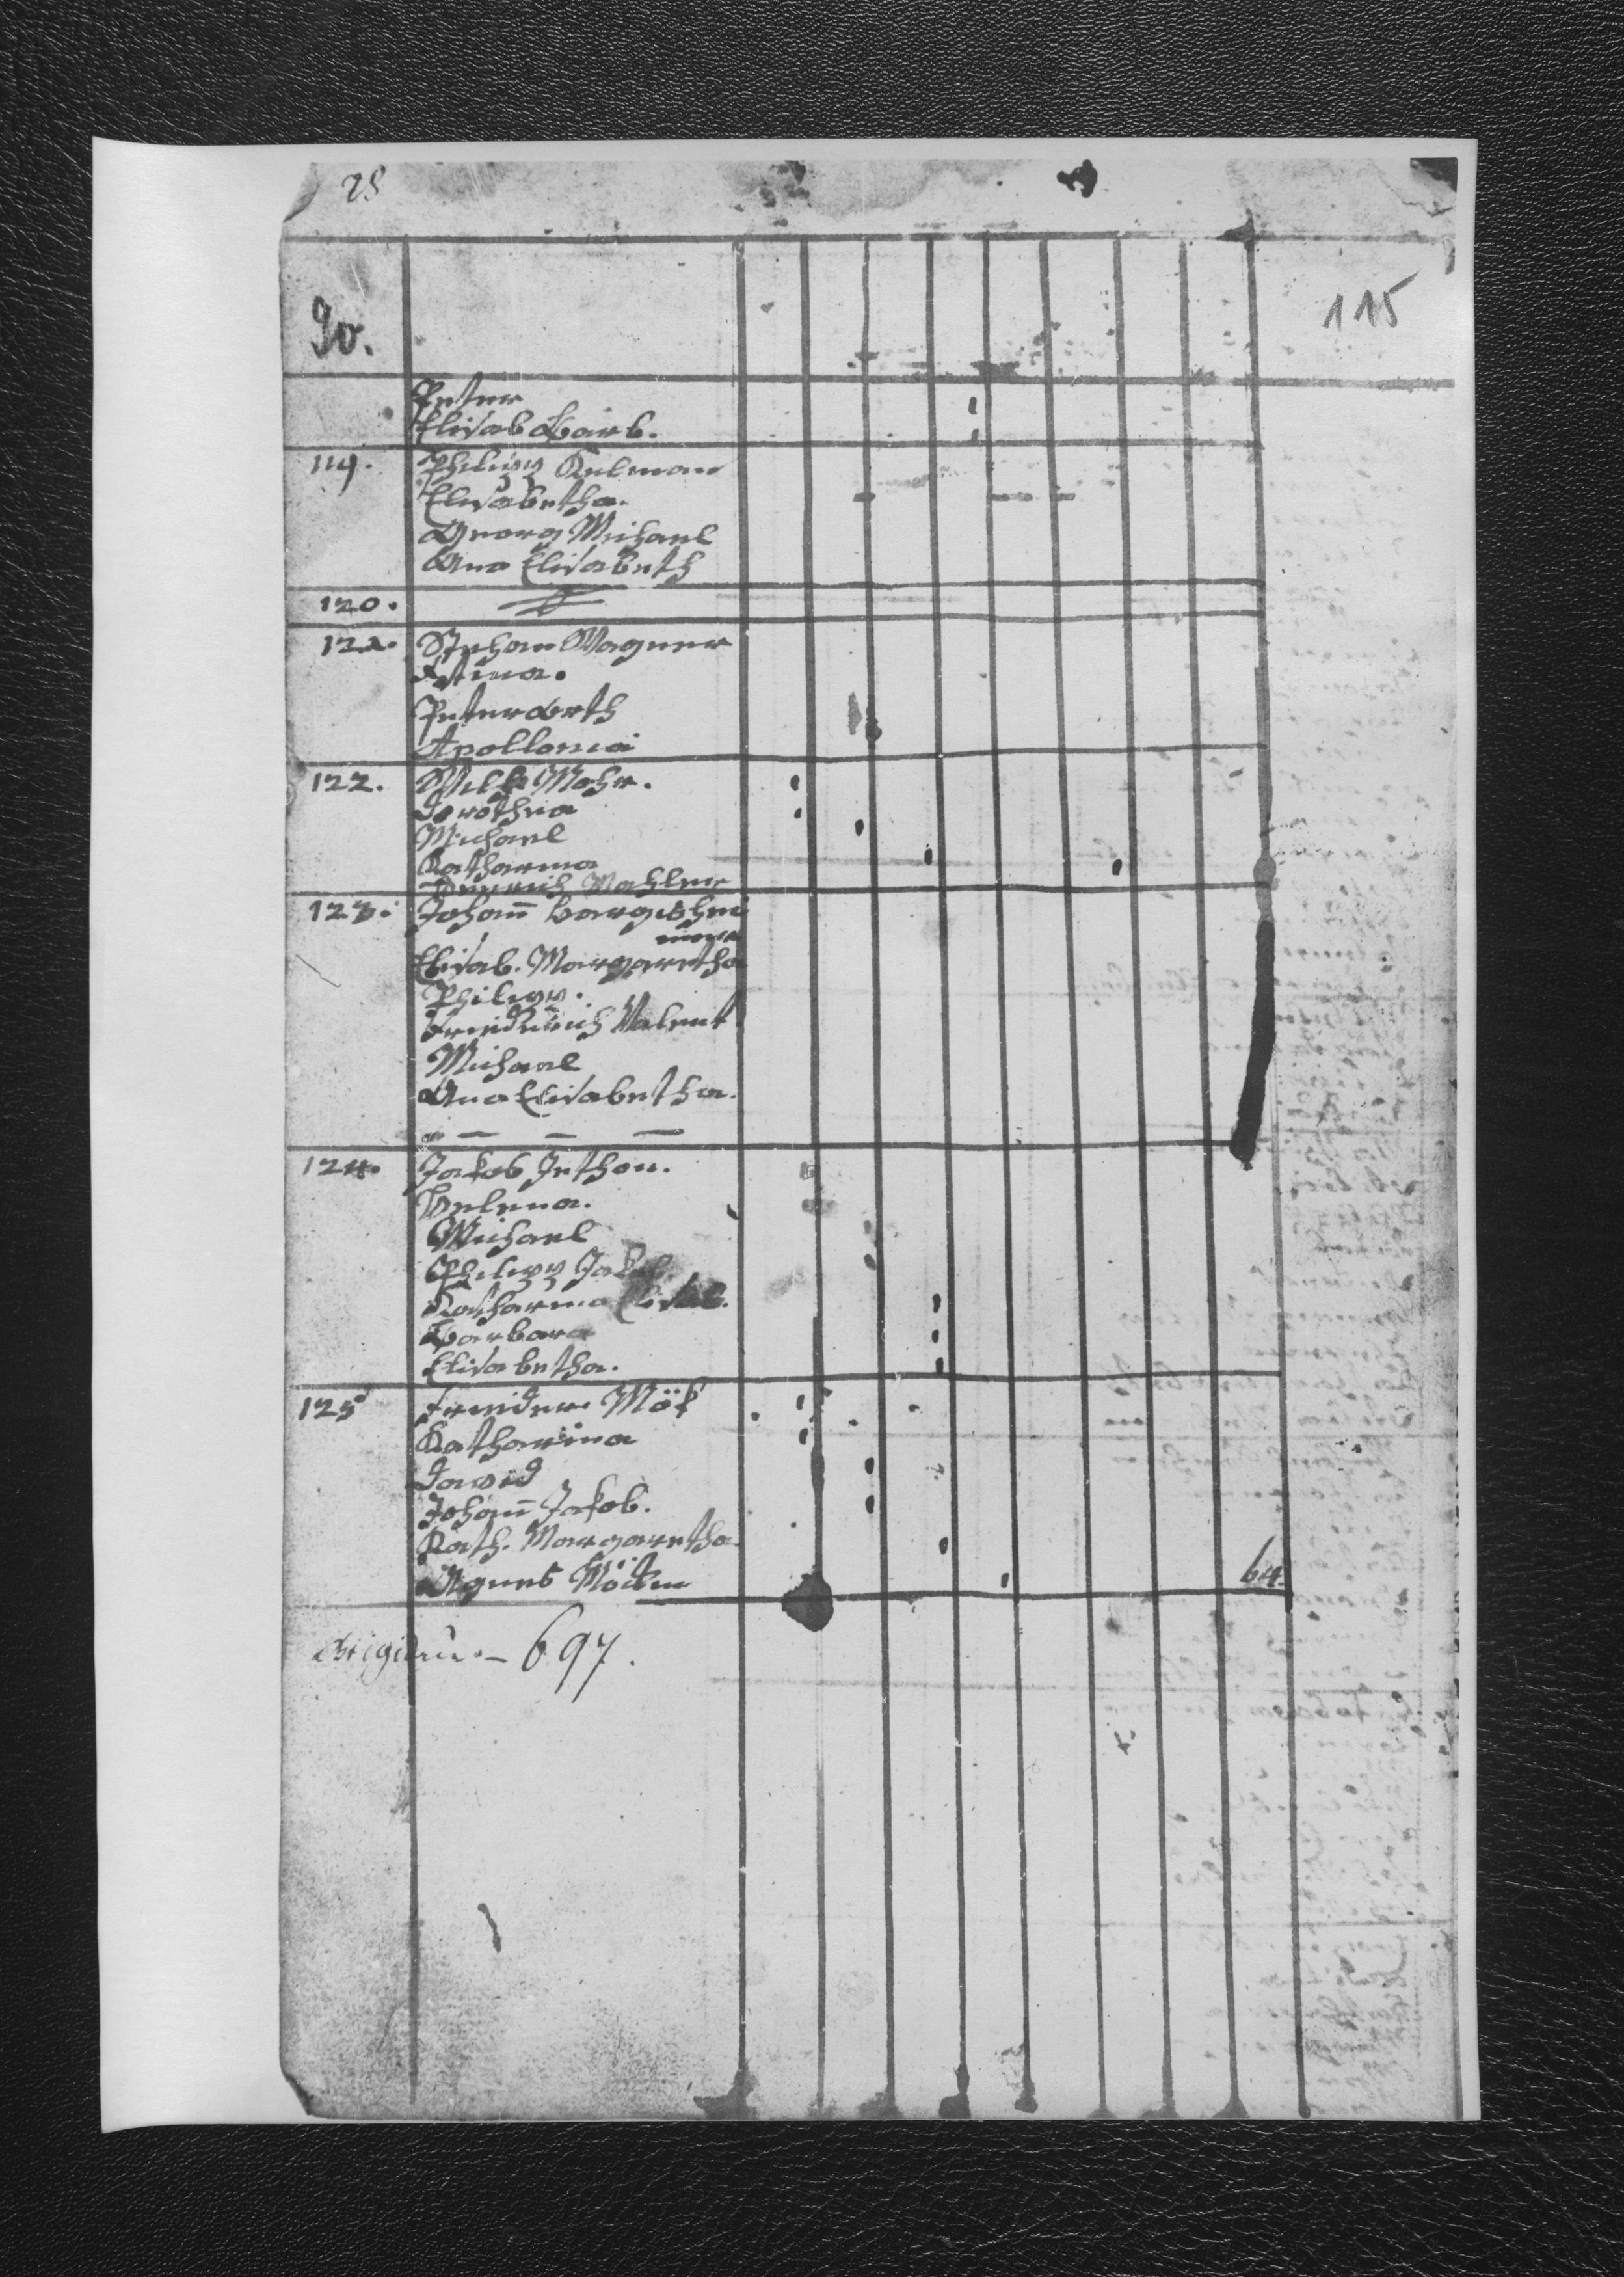 28
No.
115
Peter
Elisab Barb.
119. Philipp
Elisabetha.
Georg Michael
Ana Elisabeth
120.
121. Stephan Wagner
Peter
Apollonia
122. Mohr.
Dorothea
Michael
Katharina
Henrich Mahler
123. Johann
Elisab. Margaretha
Philipp.
Friedrich Valent
Michael
Ana Elisabetha.
124. Jakob
Helena.
Michael
Philipp Jakob
Katharina Elisab.
Barbara
Elisabetha.
125 Frieder. Mök
Katharina
David
Johann Jakob.
Kath. Margaretha
Agnes 64.
697.